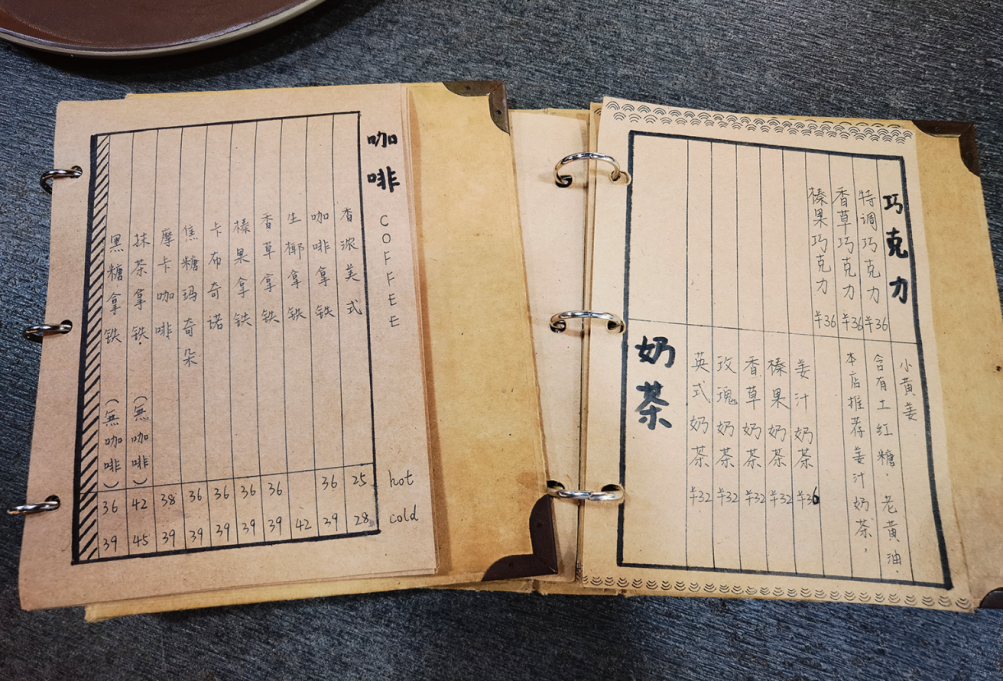 咖啡 COFFEE hot cold
香浓美式 25 28
咖啡拿铁 36 39
生椰拿铁 42
香草拿铁 36 39
榛果拿铁 36 39
卡布奇诺 36 39
焦糖玛奇朵 36 39
摩卡咖啡 38 39
抹茶拿铁（無咖啡） 42 45
黑糖拿铁（無咖啡） 36 39
巧克力
特调巧克力 ¥36
香草巧克力 ¥36
榛果巧克力 ¥36
奶茶
英式奶茶 ¥32
玫瑰奶茶 ¥32
香草奶茶 ¥32
榛果奶茶 ¥32
姜汁奶茶 ¥36
本店推荐姜汁奶茶，
含有土红糖，老黄油，
小黄姜